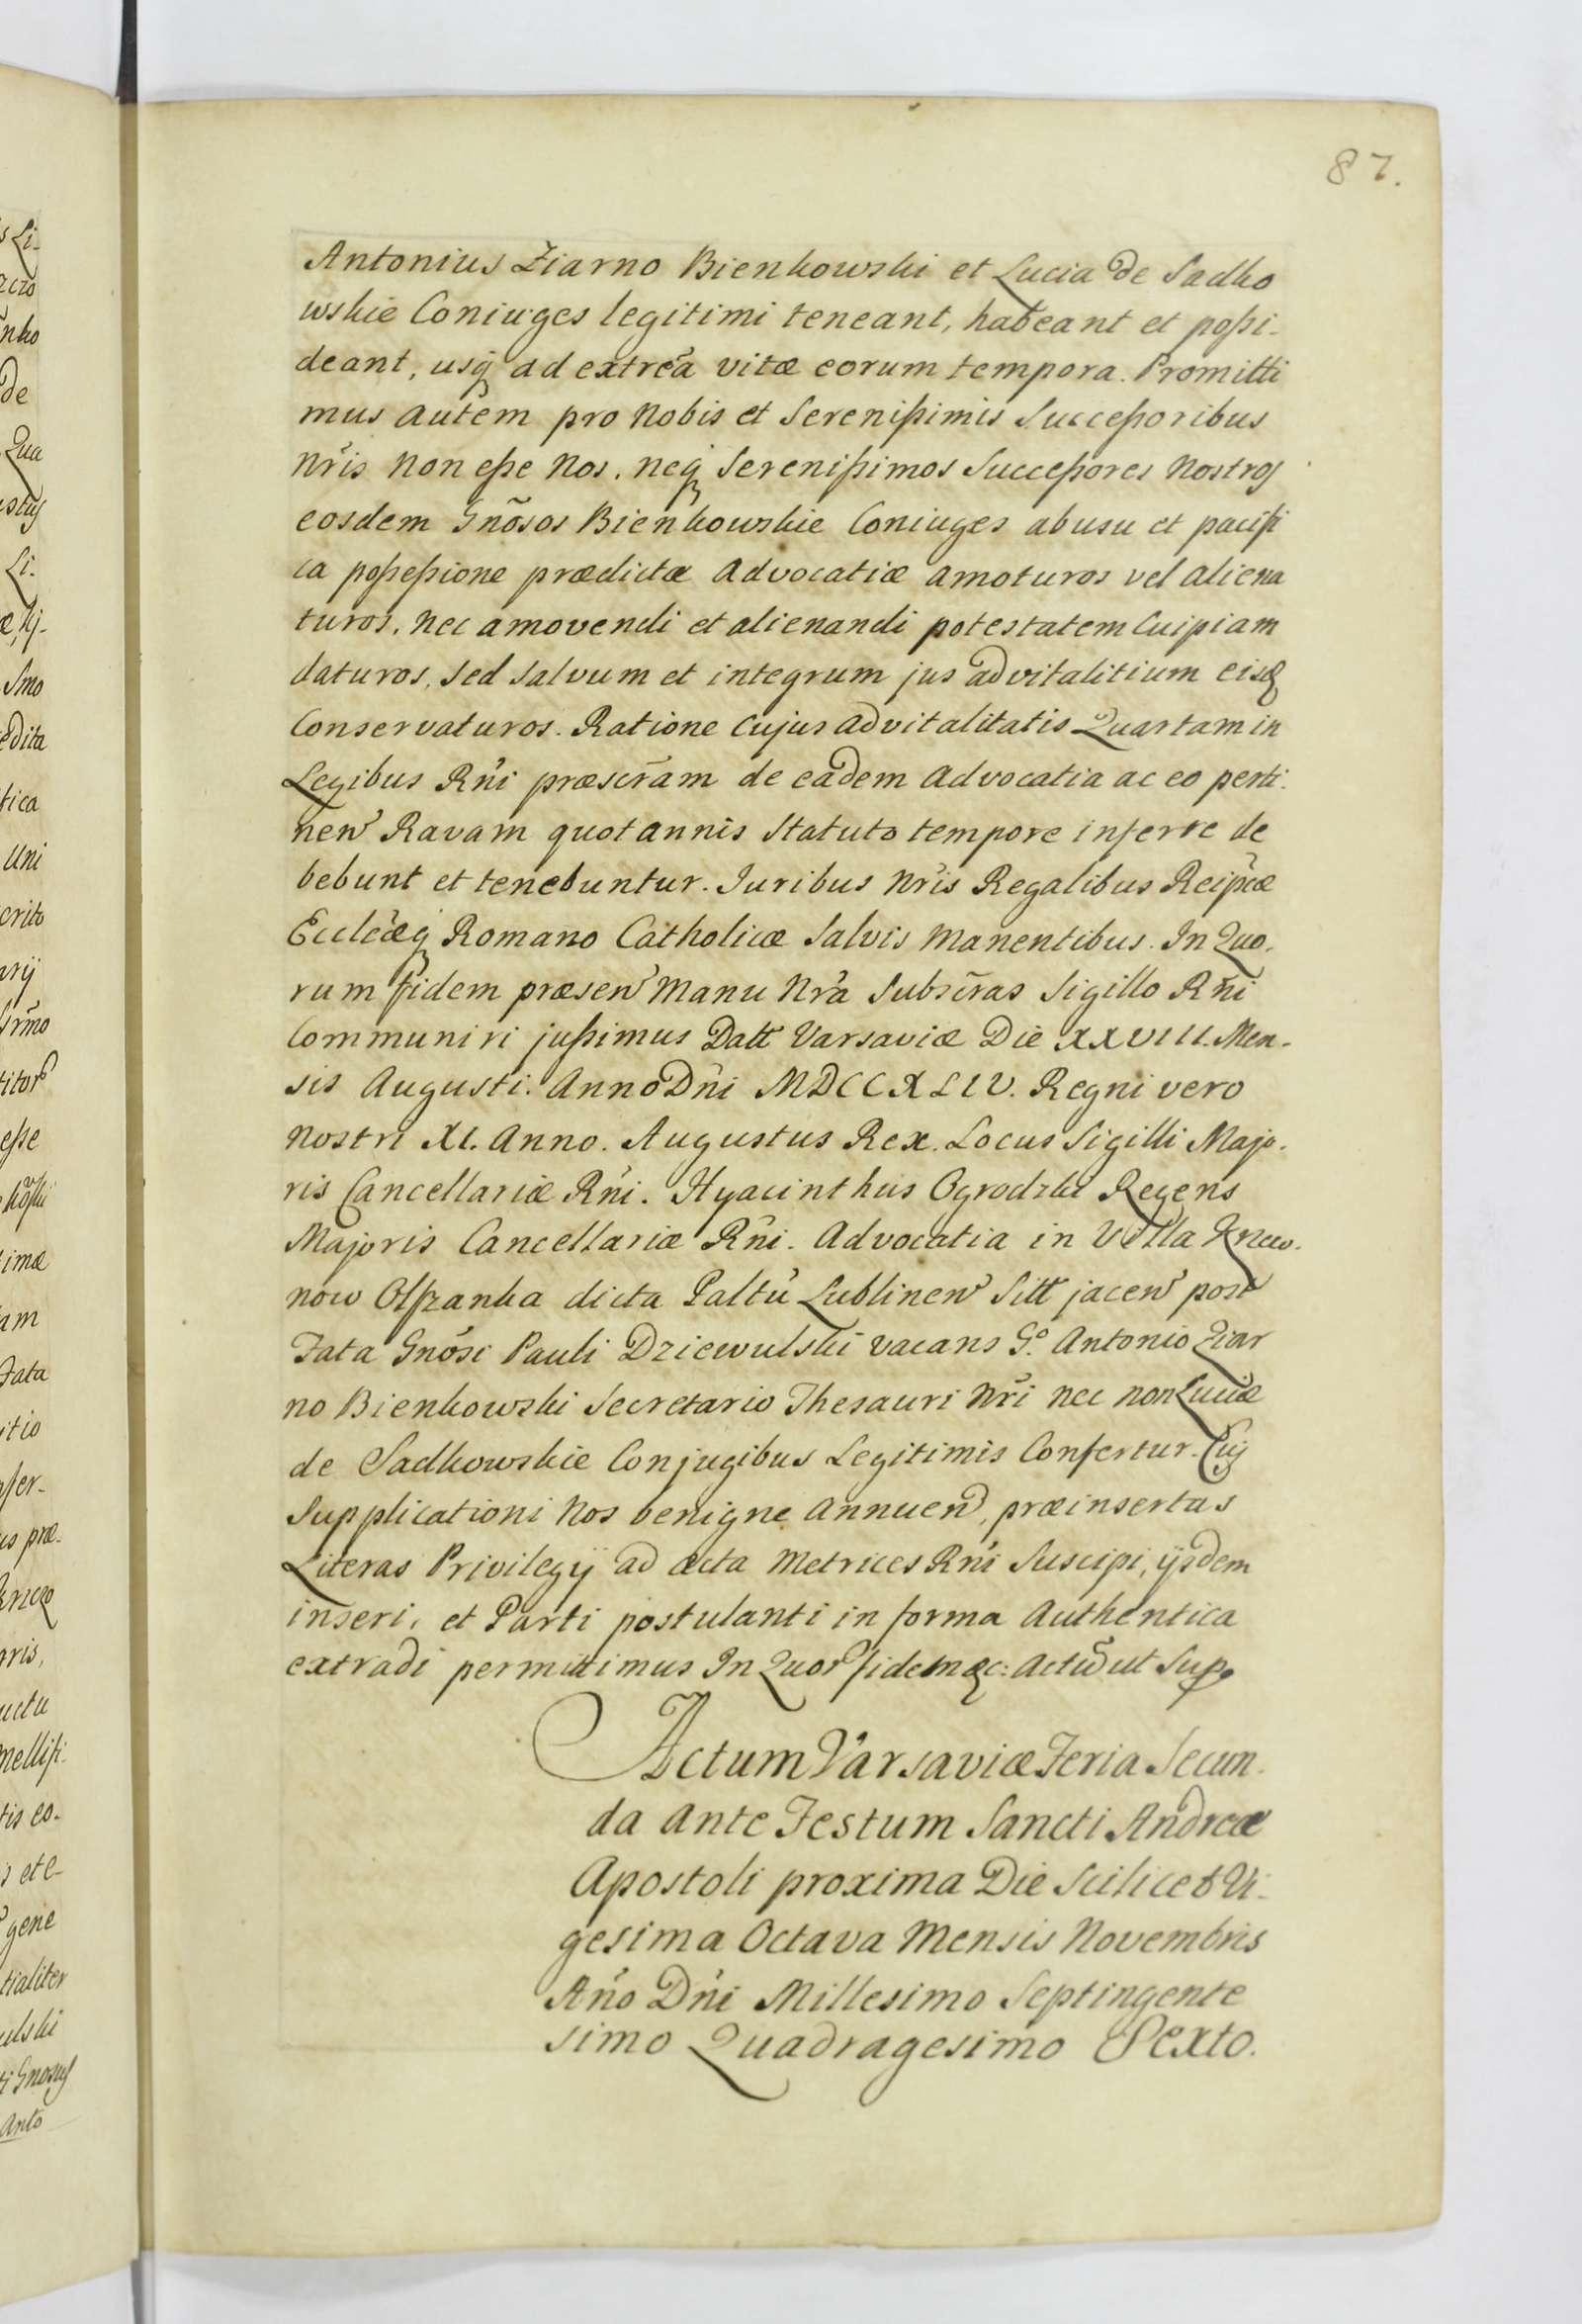 87.
Antonius Ziarno Bienkowski et Lucia de Sadko
wskie Coniuges legitimi teneant, habeant et possi-
deant, usq́ ad extrea vitæ eorum tempora. Promitti
mus autem pro Nobis et Serenissimis Successoribus
Nris non esse Nos, neq́ Serenissimos Successores Nostros
eosdem Gnosos Bienkowskie Coniuges abusu et pacifi
ca possessione prædictæ Advocatiæ amoturos vel aliena
turos, nec amovendi et alienandi potestatem Cuipiam
daturos, Sed salvum et integrum jus advitalitium eisq
Conservaturos. Ratione cujus advitalitatis Quartam in
Legibus Rni præscram de eadem Advocatia ac eo perti-
nen Ravam quotannis Statuto tempore inferre de
bebunt et tenebuntur. Iuribus Nris Regalibus Reipcæ
Eccleæq́ Romano Catholicæ Salvis Manentibus. In Quo-
rum fidem præsen Manu Nra Subscras Sigillo Rni
Communiri jussimus Datt Varsaviæ Die XXVIII. Men-
sis Augusti. Anno Dni MDCCXLIV. Regni vero
Nostri XI. Anno. Augustus Rex. Locus Sigilli Majo-
ris Cancellariæ Rni. Hyacinthus Ogrodzki Regens
Majoris Cancellariæ Rni. Advocatia in Villa
now dicta Paltu Lublinen Sitt jacen post
Fata Gnosi Pauli Dziewulski vacans G.º Antonio Ziar
no Bienkowski Secretario Thesauri Nri nec non Luciæ
de Sadkowskie Conjugibus Legitimis Confertur. Cuj
Supplicationi Nos benigne Annuen, præinsertas
Literas Privilegij ad acta Metrices Rni Suscipi, ijsdem
inseri, et Parti postulanti in forma Authentica
extradi permittimus In Quor fidem &c: Actũ ut Sup.
Actum Varsaviæ Feria Secun-
da ante Festum Sancti Andreæ
Apostoli proxima Die Scilicet Vi-
gesima Octava Mensis Novembris
Ano Dni Millesimo Septingente
simo Quadragesimo Sexto.